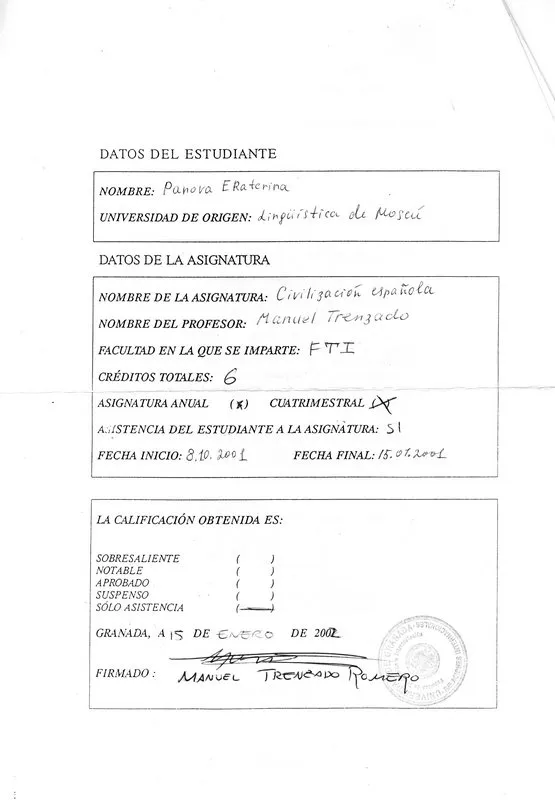 DATOS DEL ESTUDIANTE
NOMBRE: Panova EKaterina
UNIVERSIDAD DE ORIGEN: Lingüística de Moscú
DATOS DE LA ASIGNATURA
NOMBRE DE LA ASIGNATURA: Civilización española
NOMBRE DEL PROFESOR: Manuel Trenzado
FACULTAD EN LA QUE SE IMPARTE: FTI
CRÉDITOS TOTALES: 6
ASIGNATURA ANUAL (x) CUATRIMESTRAL (X)
ASISTENCIA DEL ESTUDIANTE A LA ASIGNATURA: SI
FECHA INICIO: 8.10.2001 FECHA FINAL: 15.01.2001
LA CALIFICACIÓN OBTENIDA ES:
SOBRESALIENTE ( )
NOTABLE ( )
APROBADO ( )
SUSPENSO ( )
SÓLO ASISTENCIA (—)
GRANADA, A 15 DE ENERO DE 2002
FIRMADO: MANUEL TRENZADO ROMERO